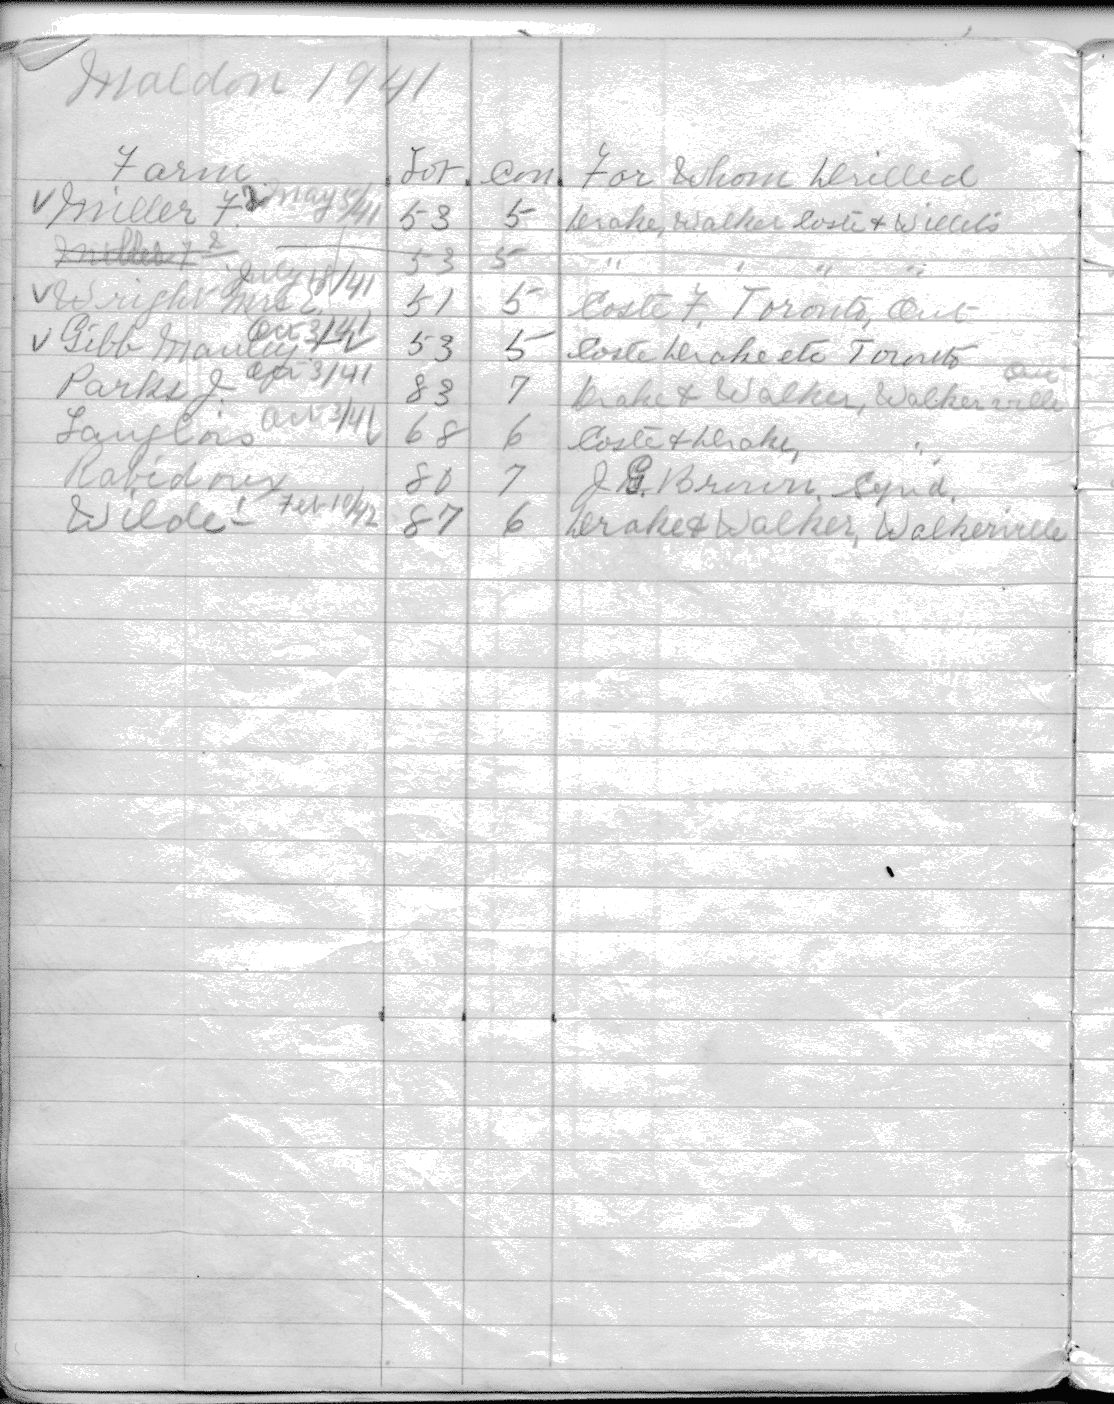 Maldon 1941
Farm Lot. Con. For Whom Drilled
✓ Miller F. 2 May 5/41 53 5 Drake, Walker Coste & Willits
Miller F 2 53 5 " " " "
✓ Wright Mrs E. July 18/41 51 5 Coste F. Toronto, Ont
✓ Gibb Manley Oct 3/41 53 5 Coste Drake etc Toronto Ont
Parks J. Apr 3/41 83 7 Drake & Walker, Walkerville
Langlois Oct 3/41 68 6 Coste & Drake, "
Rabidoux 80 7 J. G. Brown. Synd.
Wilde - Feb 10/42 87 6 Drake & Walker, Walkerville